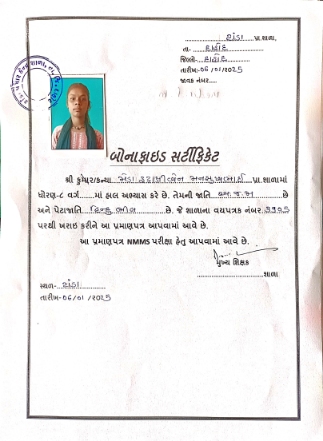 રાંડા પ્રા.શાળા,
તા.
જિલ્લો- દાહોદ
તારીખ-06/01/2025
જાવક નંબર.....
બોનાફાઇડ સર્ટીફિકેટ
શ્રી કુમાર/કન્યા પ્રા.શાળામાં
ધોરણ-૮ વર્ગ......માં હાલ અભ્યાસ કરે છે. તેમની જાતિ છે
અને પેટાજાતિ હિન્દુ ભીલ છે. જે શાળાના વયપત્રક નંબર
પરથી ખરાઇ કરીને આ પ્રમાણપત્ર આપવામાં આવે છે.
આ પ્રમાણપત્ર NMMS પરીક્ષા હેતુ આપવામાં આવે છે.
મુખ્ય શિક્ષક
શાળા
સ્થળ- રાંડા
તારીખ-06/01/2025